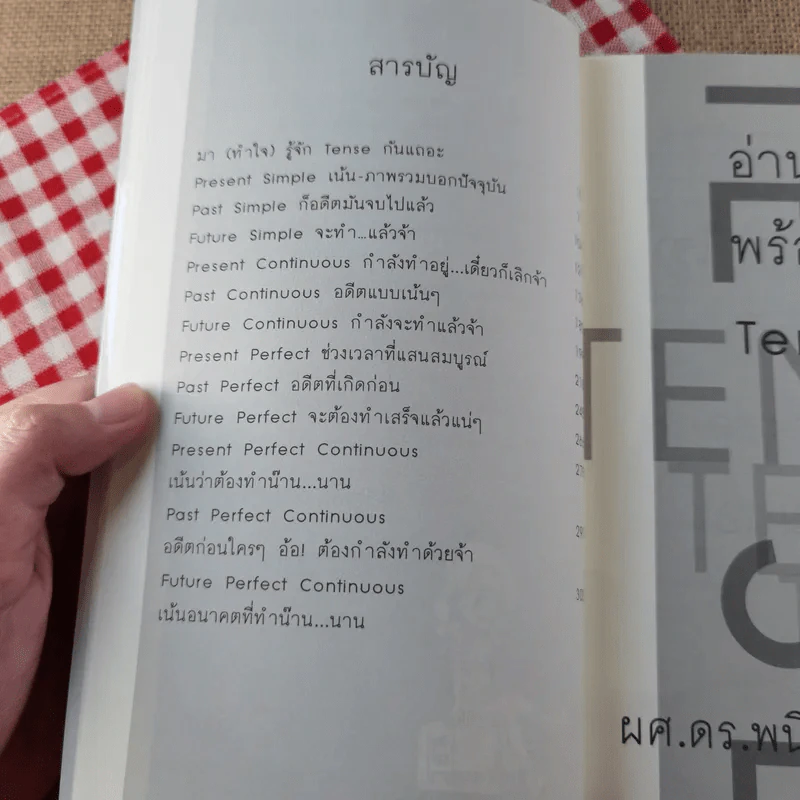 สารบัญ
มา (ทำใจ) รู้จัก Tense กันเถอะ
Present Simple เน้น-ภาพรวมบอกปัจจุบัน
Past Simple ก็อดีตมันจบไปแล้ว
Future Simple จะทำ...แล้วจ้า
Present Continuous กำลังทำอยู่...เดี๋ยวก็เลิกจ้า
Past Continuous อดีตแบบเน้นๆ
Future Continuous กำลังจะทำแล้วจ้า
Present Perfect ช่วงเวลาที่แสนสมบูรณ์
Past Perfect อดีตที่เกิดก่อน
Future Perfect จะต้องทำเสร็จแล้วแน่ๆ
Present Perfect Continuous
เน้นว่าต้องทำน๊าน...นาน
Past Perfect Continuous
อดีตก่อนใครๆ อ้อ! ต้องกำลังทำด้วยจ้า
Future Perfect Continuous
เน้นอนาคตที่ทำน๊าน...นาน
อ่าน
TEN
ผศ.ดร.พนิ